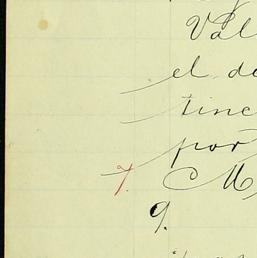 Val
el de
tinc
por
7. M
9.